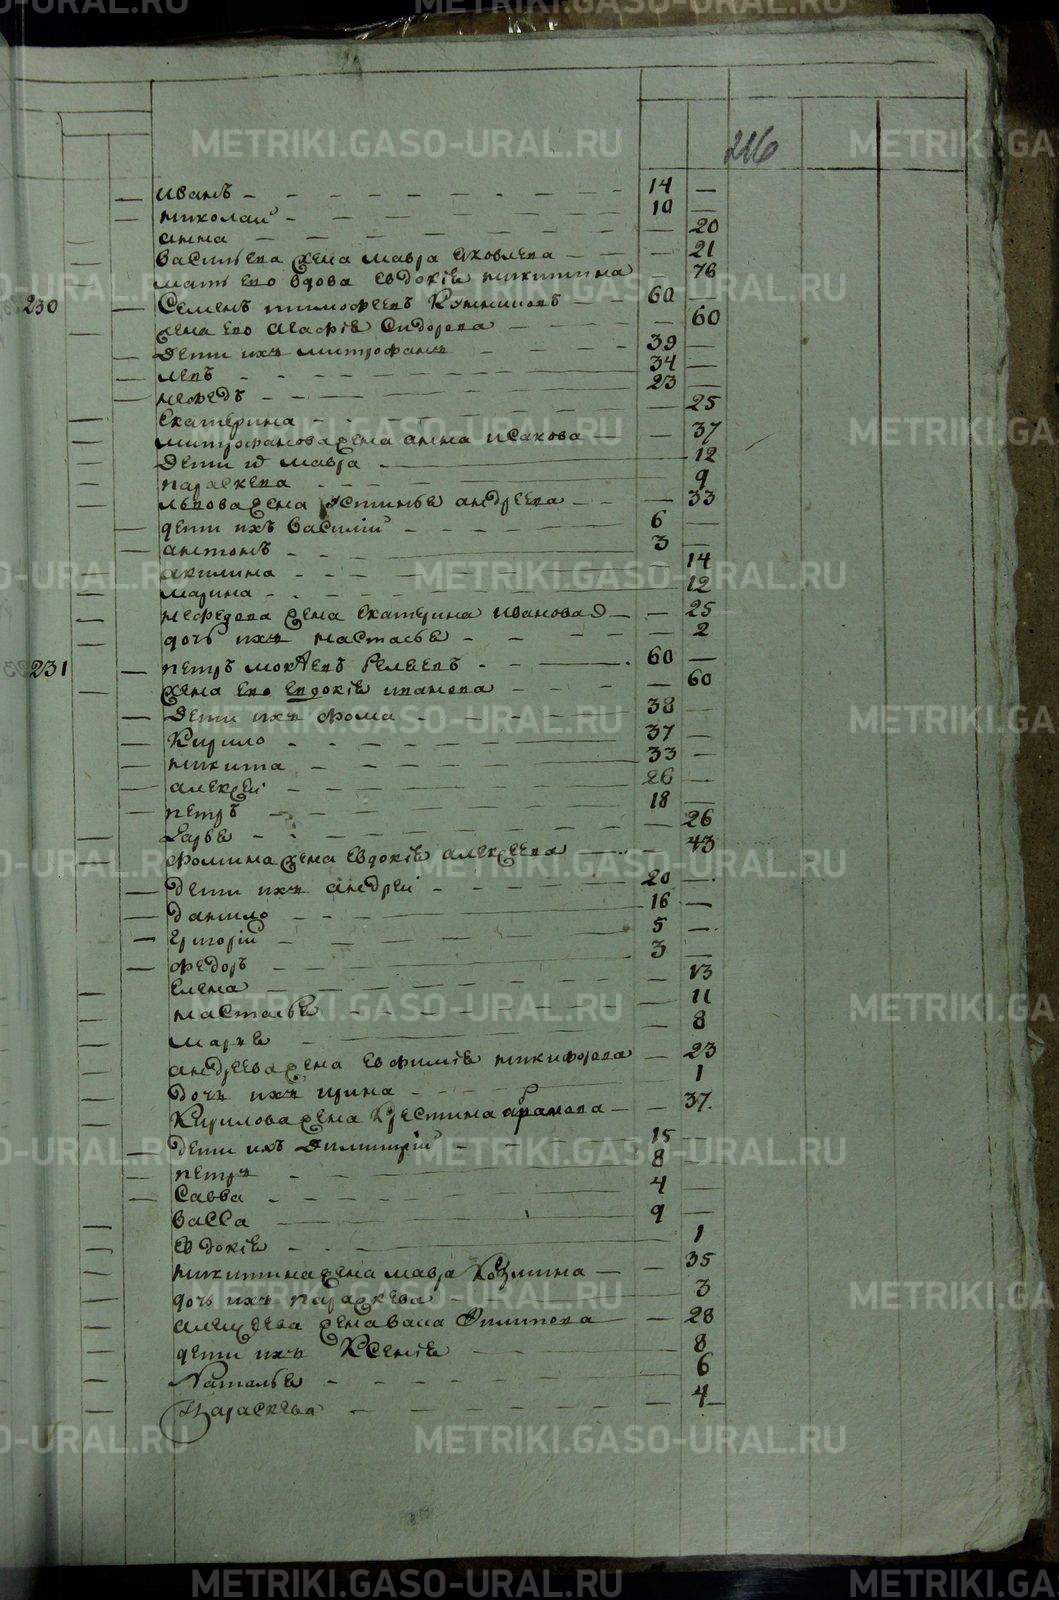 216
Иванъ 14 —
Николай 10 —
Анна — 20
Васильева жена Мавра Яковлева — 21
Мать его вдова Евдокія Никитина — 76
230 Семенъ Тимофеевъ 60 —
жена его Агафія Сидорова — 60
Дети ихъ Митрофанъ 39 —
Левъ 34 —
Нефедъ 23 —
Екатерина — 25
Митрофанова жена Анна Исакова — 37
Дети их Мавра — 12
Параскева — 9
Львова жена Устинья Андреева — 33
дети ихъ Василій 6 —
Антонъ 3 —
Акилина — 14
Марина — 12
Нефедова жена Екатерина Иванова — 25
дочь ихъ Настасья — 2
231 Петръ 60 —
жена его Евдокія Иванова — 60
Дети ихъ Фома 38 —
Кирило 37 —
Никита 33 —
Алексей 26 —
Петръ 18 —
Дарья — 26
Фомина жена Евдокія Алексеева — 43
Дети ихъ Андрей 20 —
Данило 16 —
Григорій 5 —
Федоръ 3 —
Елена — 13
Настасья — 11
Марья — 8
Андреева жена Евфимія Никифорова — 23
Дочь ихъ Ирина — 1
Кирилова жена Крестина — 37
Дети ихъ Димитрій 15 —
Петръ 8 —
Савва 4 —
Васса 9 —
Евдокія — 1
Никитина жена Мавра Козмина — 35
дочь ихъ Параскева — 3
Алексеева жена Васа Филипова — 28
дети ихъ Ксенія — 8
Наталья — 6
Параскева — 4
METRIKI.GASO-URAL.RU